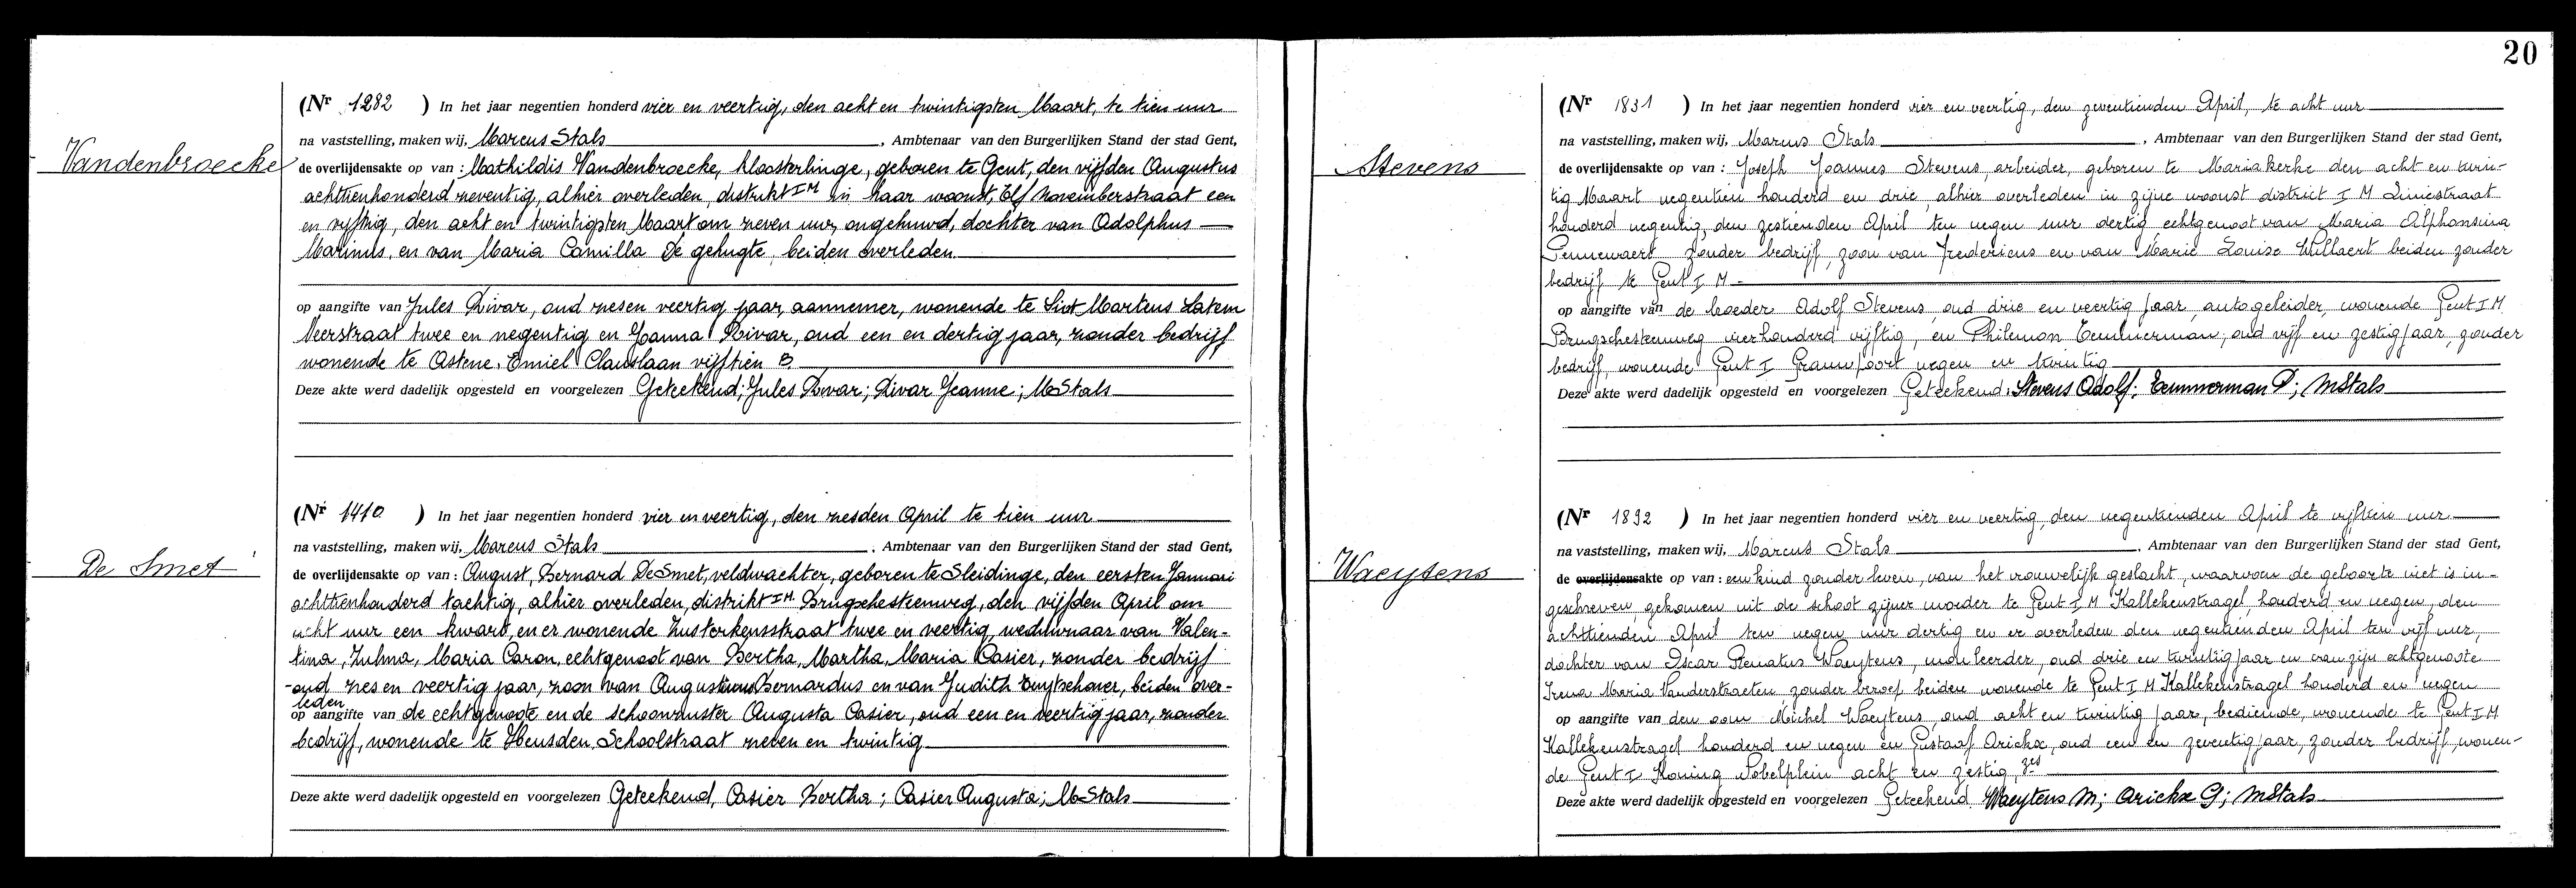 20
Vandenbroecke
(Nr 1282 ) In het jaar negentien honderd vier en veertig, den acht en twintigsten Maart, te tien uur
na vaststelling, maken wij, Marcus Stals , Ambtenaar van den Burgerlijken Stand der stad Gent,
de overlijdensakte op van : Mathildis Vandenbroecke, kloosterlinge, geboren te Gent, den vijfden Augustus
achttienhonderd zeventig, alhier overleden, distrikt I M in haar woonst, Elf Novemberstraat een
en vijftig, den acht en twintigsten Maart om zeven uur, ongehuwd, dochter van Adolphus
Marinus, en van Maria Camilla De gehugte, beiden overleden.
op aangifte van Jules Divar, oud zesen veertig jaar, aannemer, wonende te Sint Martens Latem
Neerstraat twee en negentig en Joanna Divar, oud een en dertig jaar, zonder bedrijf
wonende te Astene, Emiel Clauslaan vijftien B.
Deze akte werd dadelijk opgesteld en voorgelezen Geteekend; Jules Divar; Divar Jeanne; M Stals
De Smet
(Nr 1410 ) In het jaar negentien honderd vier en veertig, den zesden April te tien uur
na vaststelling, maken wij, Marcus Stals , Ambtenaar van den Burgerlijken Stand der stad Gent,
de overlijdensakte op van : August, Bernard De Smet, veldwachter, geboren te Sleidinge, den eersten Januari
achttienhonderd tachtig, alhier overleden, distrikt I M. Brugschesteenweg, den vijfden April om
acht uur een kwart, en er wonende Zusterkensstraat twee en veertig, weduwnaar van Valen-
tina, Zulma, Maria Caron, echtgenoot van Bertha, Martha, Maria Casier, zonder bedrijf
oud zes en veertig jaar, zoon van Augustinus Bernardus en van Judith , beiden over-
leden
op aangifte van de echtgenoote en de schoonzuster Augusta Casier, oud een en veertig jaar, zonder
bedrijf, wonende te Heusden, Schoolstraat zeven en twintig
Deze akte werd dadelijk opgesteld en voorgelezen Geteekend, Casier Bertha; Casier Augusta; M Stals
Stevens
(Nr 1831 ) In het jaar negentien honderd vier en veertig, den zeventienden April, te acht uur
na vaststelling, maken wij, Marcus Stals , Ambtenaar van den Burgerlijken Stand der stad Gent,
de overlijdensakte op van : Joseph Joannes Stevens, arbeider, geboren te Mariakerke den acht en twin-
tig Maart negentien honderd en drie, alhier overleden in zijne woonst district I M Liniestraat
honderd negentig, den zestienden April ten negen uur dertig, echtgenoot van Maria Alphonsina
Pennewaert zonder bedrijf, zoon van Fredericus en van Marie Louise Willaert beiden zonder
bedrijf te Gent I M -
op aangifte van de broeder Adolf Stevens, oud drie en veertig jaar, autogeleider, wonende Gent I M
Brugschesteenweg vierhonderd vijftig, en Philemon Temmerman, oud vijf en zestig jaar, zonder
bedrijf, wonende Gent I Grauwpoort negen en twintig
Deze akte werd dadelijk opgesteld en voorgelezen Geteekend: Stevens Adolf; Temmerman P; MStals
Waeytens
(Nr 1892 ) In het jaar negentien honderd vier en veertig, den negentienden April te vijftien uur
na vaststelling, maken wij, Marcus Stals , Ambtenaar van den Burgerlijken Stand der stad Gent,
de overlijdensakte op van : een kind zonder leven, van het vrouwelijk geslacht, waarvan de geboorte niet is in-
geschreven, gekomen uit de schoot zijner moeder te Gent I M Kallekenstragel, honderd en negen, den
achttienden April ten negen uur dertig en er overleden den negentienden April ten vijf uur,
dochter van Oscar Renatus Waeytens, , oud drie en twintig jaar en van zijn echtgenoote
Irena Maria Vanderstraeten zonder beroep beiden wonende te Gent I M Kallekenstragel honderd en negen
op aangifte van den oom Michel Waeytens, oud acht en twintig jaar, bediende, wonende te Gent I M
Kallekenstragel honderd en negen en Gustaaf Arickx, oud een en zeventig jaar, zonder bedrijf, wonen-
de Gent I Koning acht en zestig zes
Deze akte werd dadelijk opgesteld en voorgelezen Geteekend Waeytens M; Arickx G; MStals